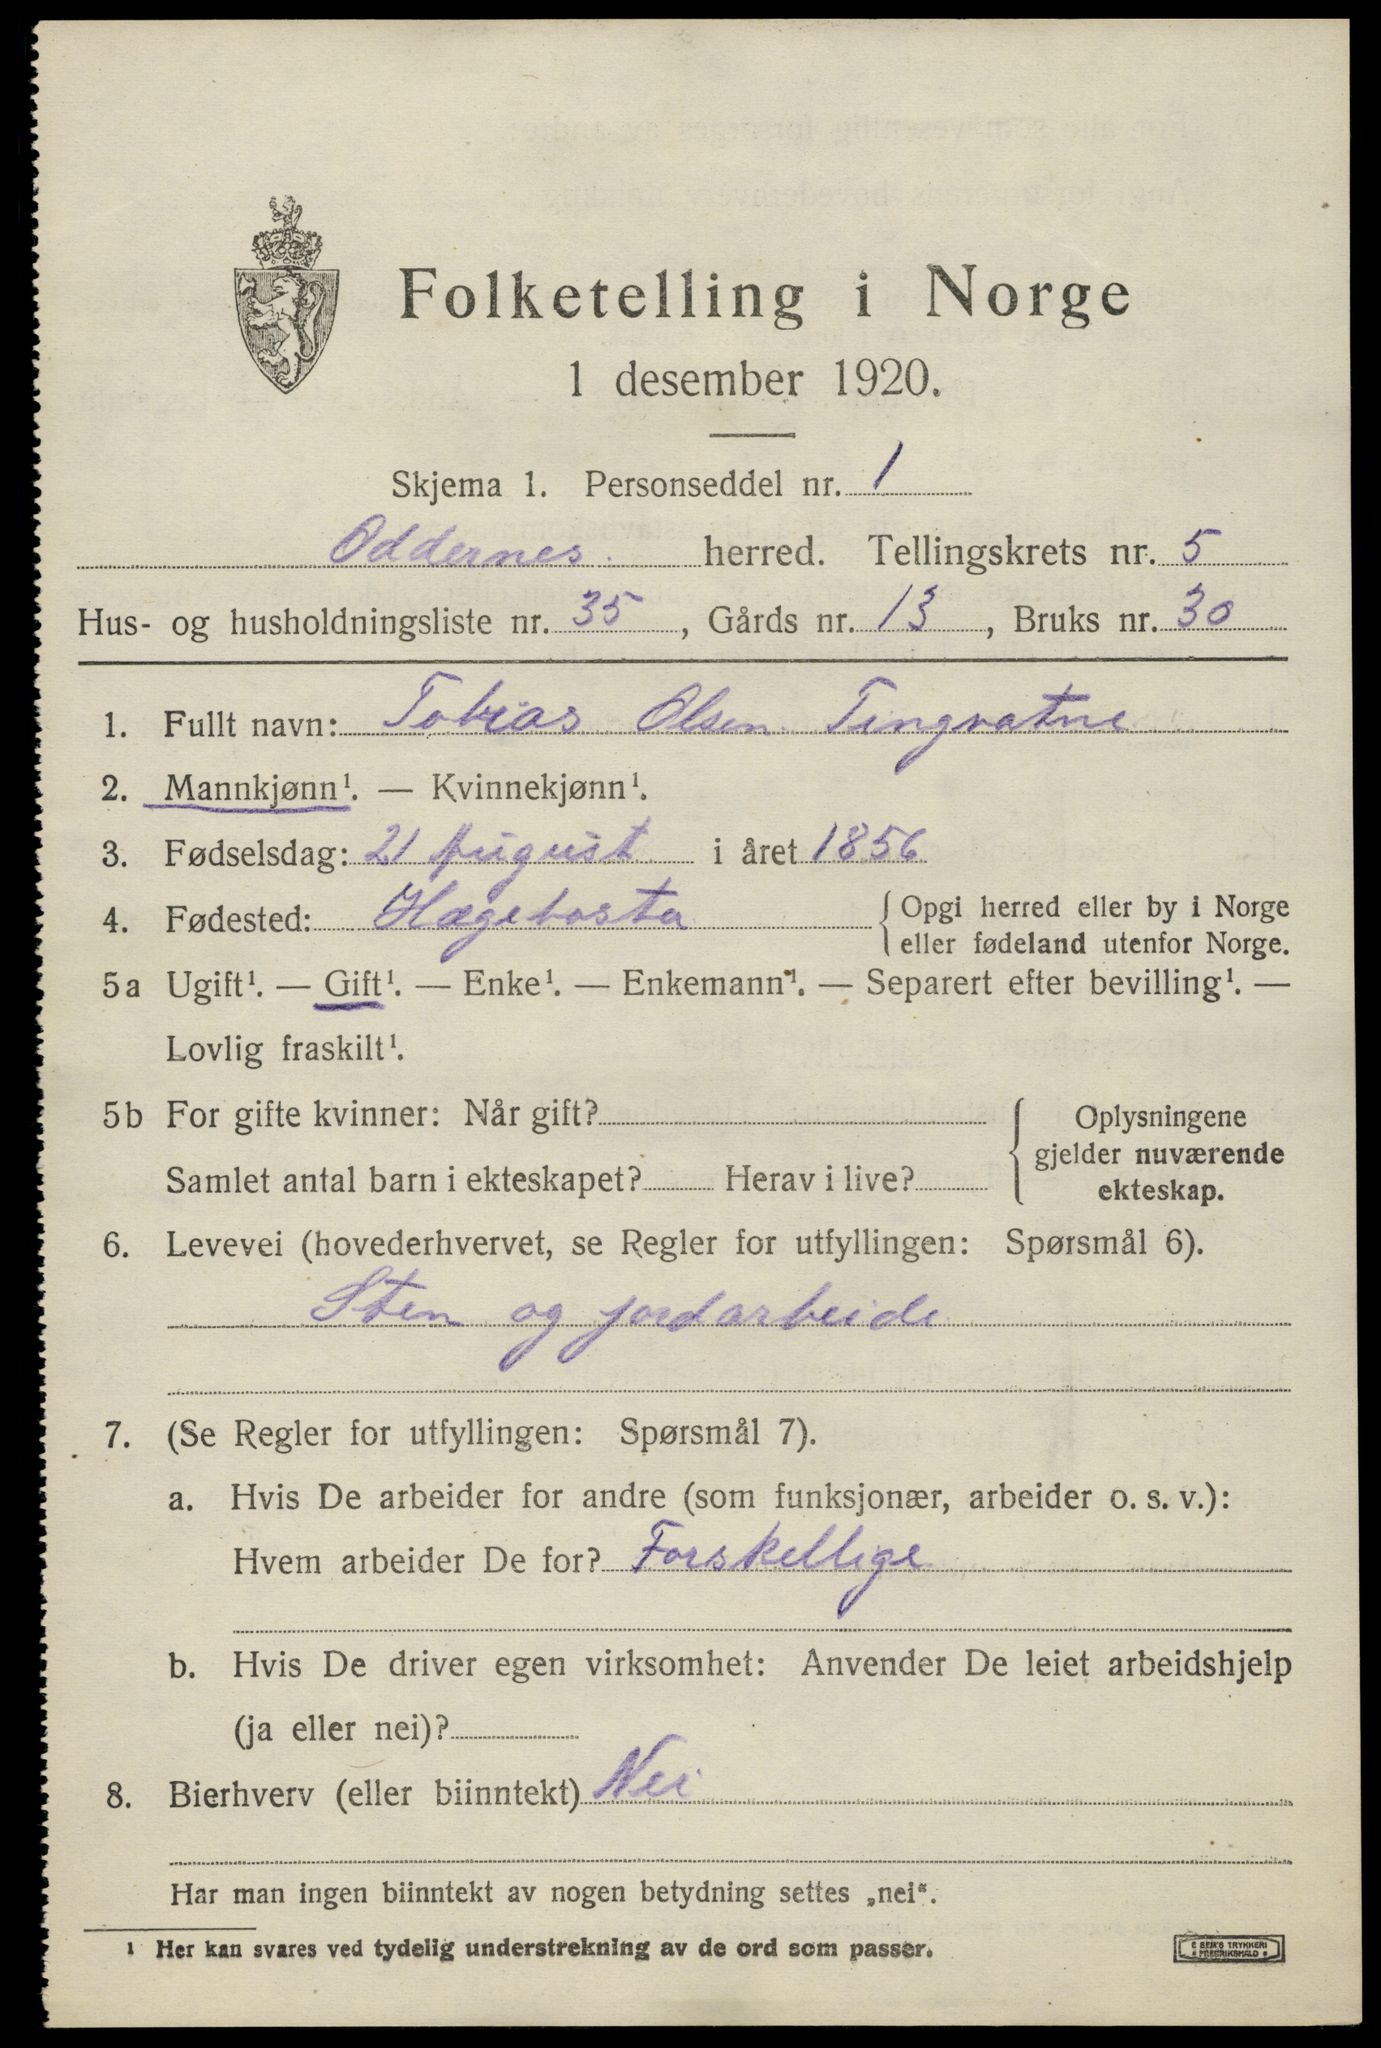 Folketelling i Norge
1 desember 1920.
Skjema 1. Personseddel nr. 1
Oddernes herred. Tellingskrets nr. 5
Hus- og husholdningsliste nr. 35, Gårds nr. 13, Bruks nr. 30
1. Fullt navn: Tobias Olsen Tingvatne
2. Mannkjønn¹. — Kvinnekjønn¹.
3. Fødselsdag: 21 August i året 1856
4. Fødested: Hægebosta { Opgi herred eller by i Norge
eller fødeland utenfor Norge.
5a Ugift¹. — Gift¹. — Enke¹. — Enkemann¹. — Separert efter bevilling¹. —
Lovlig fraskilt¹.
5b For gifte kvinner: Når gift?
Samlet antal barn i ekteskapet? Herav i live?
{ Oplysningene
gjelder nuværende
ekteskap.
6. Levevei (hovederhvervet, se Regler for utfyllingen: Spørsmål 6).
Sten og jordarbeide
7. (Se Regler for utfyllingen: Spørsmål 7).
a. Hvis De arbeider for andre (som funksjonær, arbeider o. s. v.):
Hvem arbeider De for? Forskellige
b. Hvis De driver egen virksomhet: Anvender De leiet arbeidshjelp
(ja eller nei)?
8. Bierhverv (eller biinntekt) Nei
Har man ingen biinntekt av nogen betydning settes „nei".
¹ Her kan svares ved tydelig understrekning av de ord som passer.
E SEM'S TRYKKERI
FREDRIKSHALD